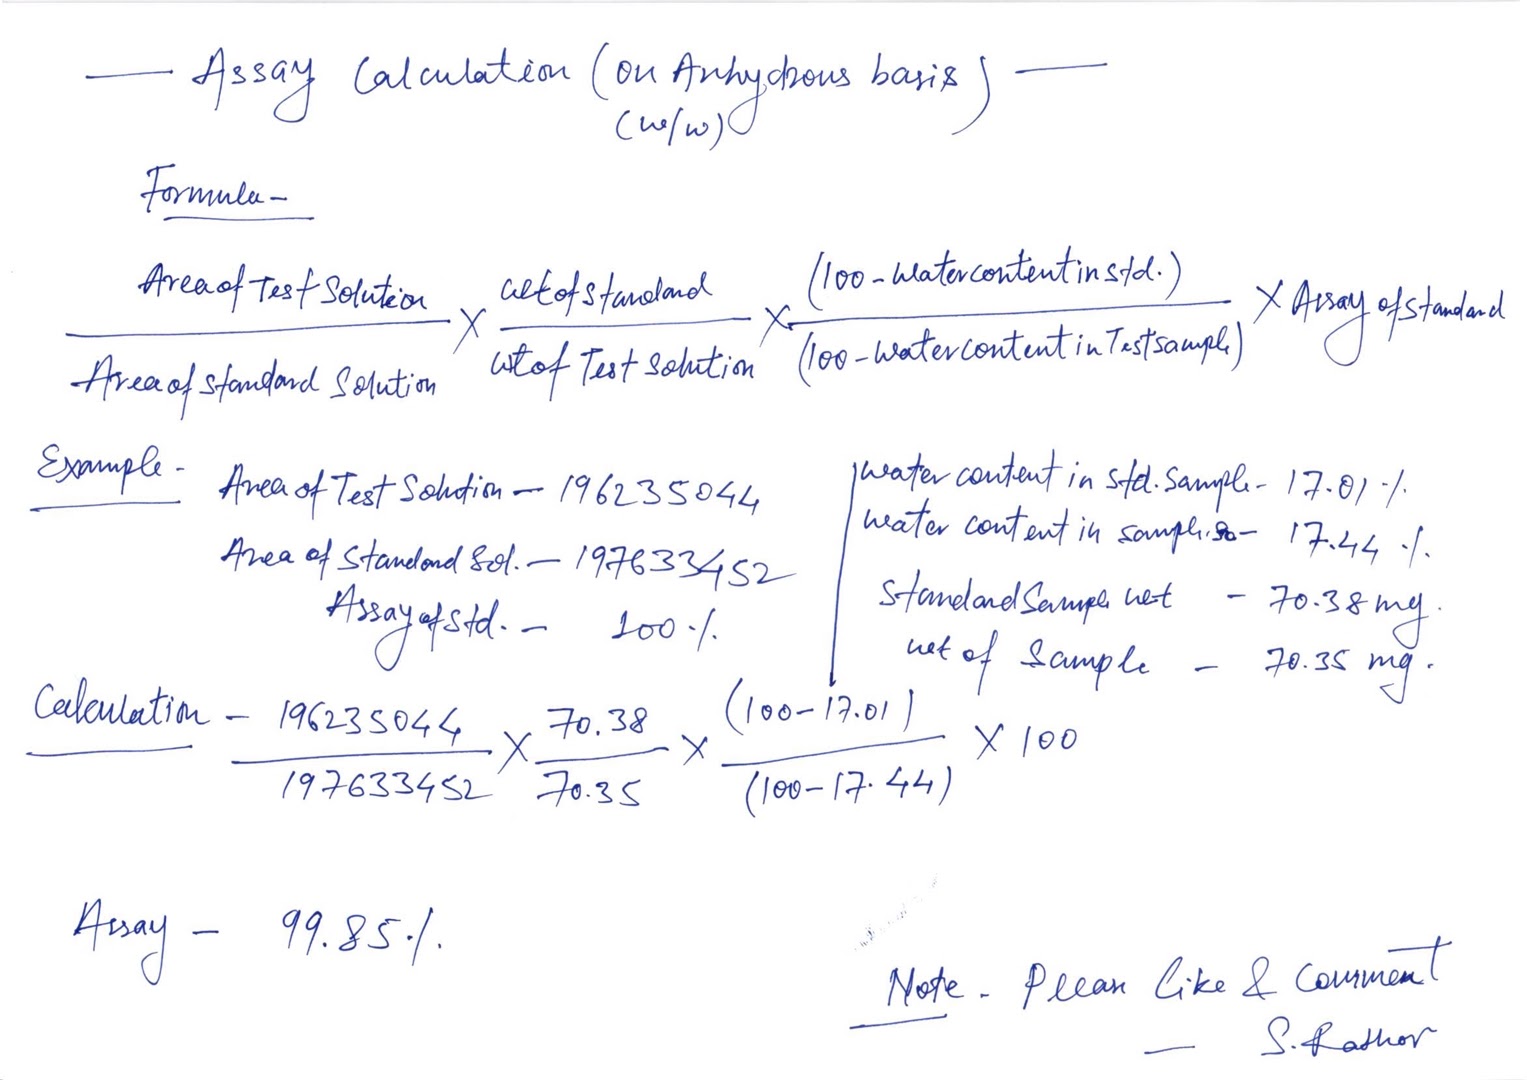 — Assay Calculation (on Anhydrous basis) —
(w/w)
Formula -
Area of Test Solution / Area of Standard Solution X wt of Standard / wt of Test Solution X (100 - Water content in std.) / (100 - Water content in Test sample) X Assay of Standard
Example - Area of Test Solution - 196235044
Area of Standard Sol. - 197633452
Assay of Std. - 100 %
water content in std. Sample - 17.01 %
water content in sample - 17.44 %
Standard Sample wet - 70.38 mg.
wet of Sample - 70.35 mg.
Calculation - 196235044 / 197633452 X 70.38 / 70.35 X (100-17.01) / (100-17.44) X 100
Assay - 99.85 %.
Note - Please like & Comment
— S. Rathor